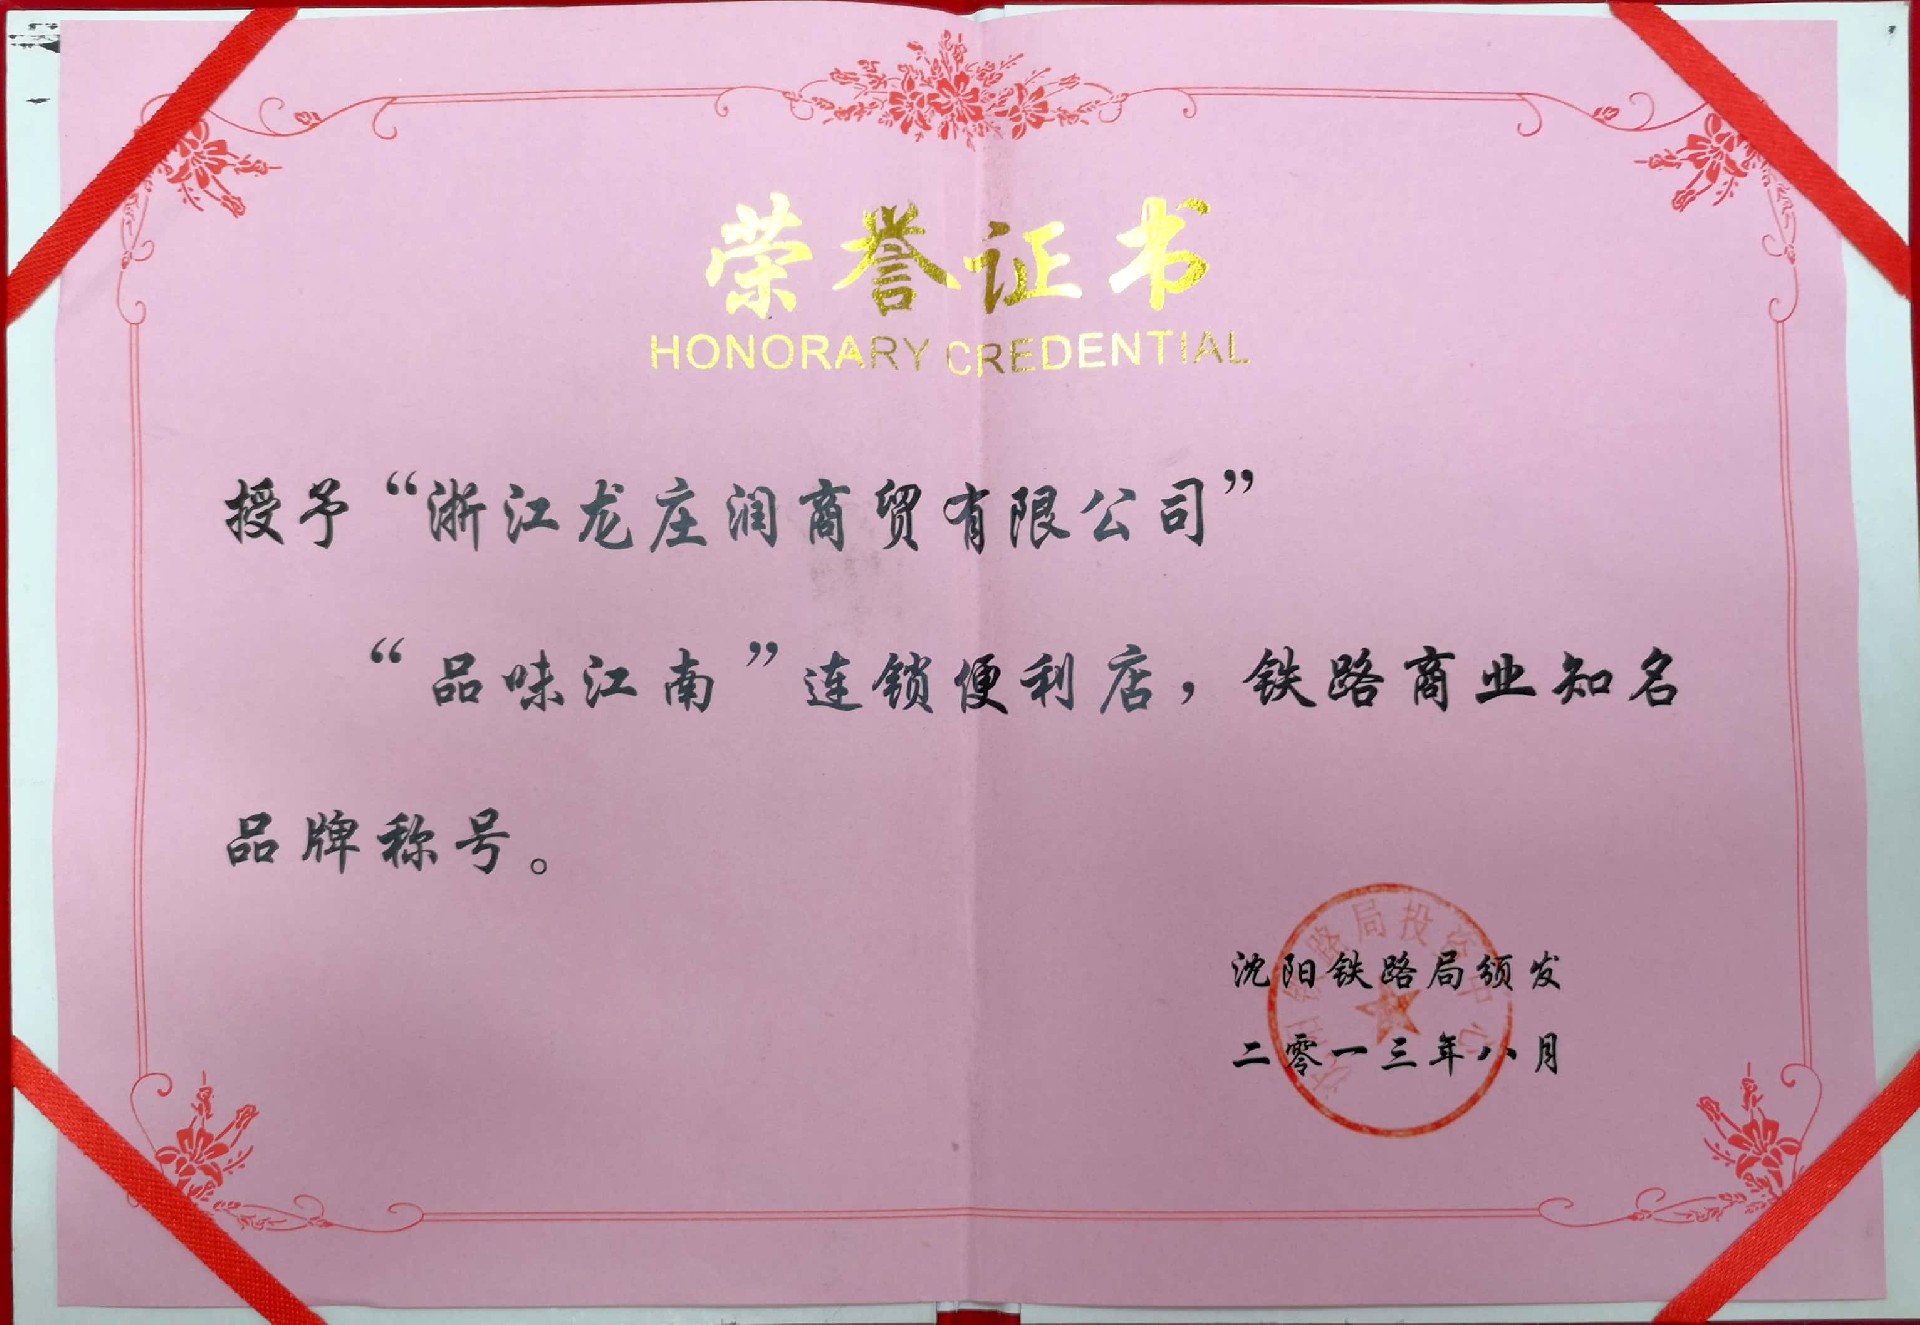 荣誉证书
HONORARY CREDENTIAL
授予“浙江龙庄润商贸有限公司”
“品味江南”连锁便利店，铁路商业知名
品牌称号。
沈阳铁路局颁发
二零一三年八月
沈阳铁路局投资中心